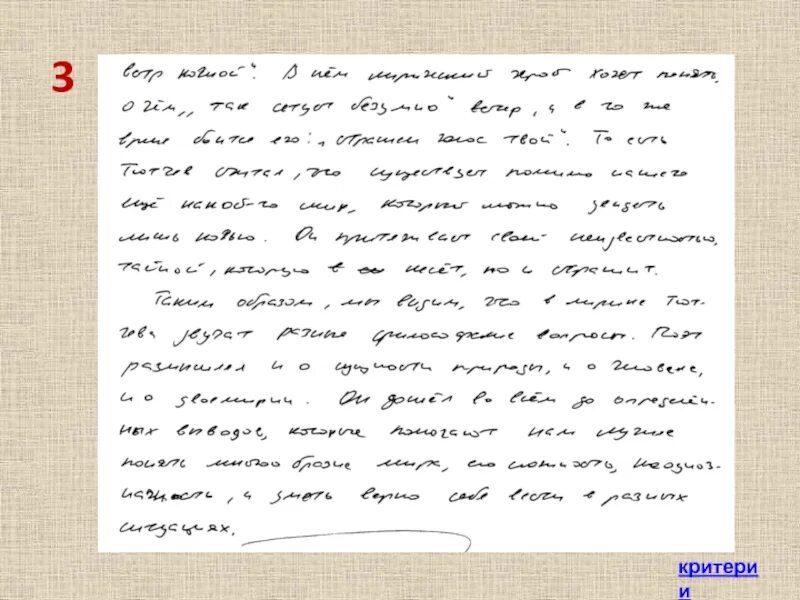 3
ветр ночной". В нём лирический герой хочет понять,
о чём „так сетует безумно" ветер, а в то же
время боится его: „страшен голос твой". То есть
Тютчев считал, что существует помимо нашего
ещё какой-то мир, который можно увидеть
лишь ночью. Он притягивает своей неизвестностью,
тайной, которую в несёт, но и страшит.
Таким образом, мы видим, что в лирике Тют-
чева звучат разные философские вопросы. Поэт
размышлял и о сущности природы, и о человеке,
и о двоемирии. Он дошёл во всём до определён-
ных выводов, которые помогают нам лучше
понять многообразие мира, его сложность, неоднoз-
начность, и уметь верно себя вести в разных
ситуациях.
критери
и